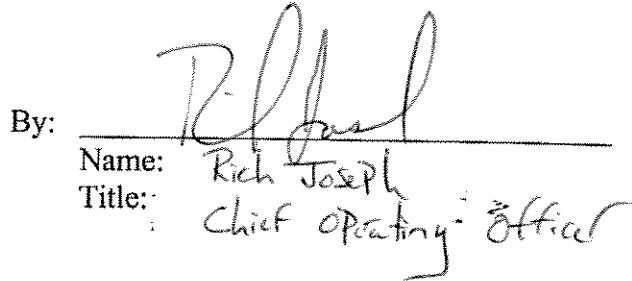 By: Rich Joseph
Name: Rich Joseph
Title: Chief Operating Officer